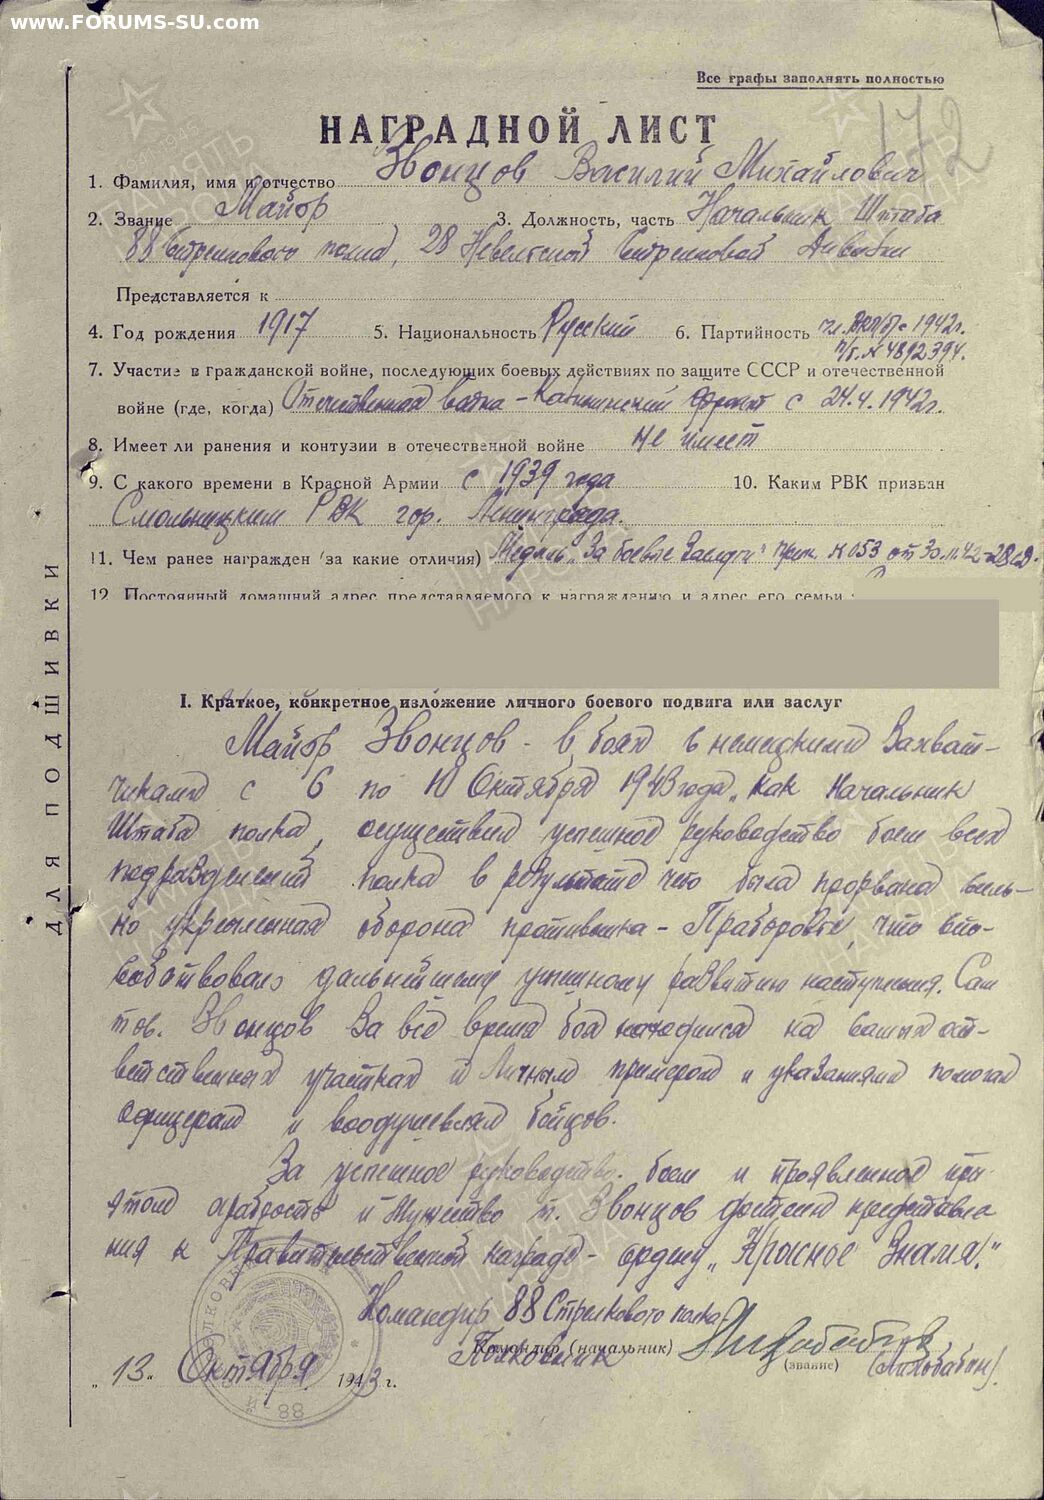 www.FORUMS-SU.com
Все графы заполнять полностью
172
НАГРАДНОЙ ЛИСТ
1. Фамилия, имя и отчество Звонцов Василий Михайлович
2. Звание Майор 3. Должность, часть Начальник Штаба
88 Стрелкового полка, 28 Невельской Стрелковой Дивизии
Представляется к
4. Год рождения 1917 5. Национальность Русский 6. Партийность чл. ВКП(б) с 1942г.
п/б. № 4892394.
7. Участие в гражданской войне, последующих боевых действиях по защите СССР и отечественной
войне (где, когда) Отечественная война – Калининский фронт с 24.4.1942г.
8. Имеет ли ранения и контузии в отечественной войне не имеет
9. С какого времени в Красной Армии с 1939 года 10. Каким РВК призван
Смольницким РВК гор. Ленинграда.
11. Чем ранее награжден (за какие отличия) Медаль "За боевые Заслуги" прик. № 053 от 30.11.42 – 28 сд.
12. Постоянный домашний адрес представляемого к награждению и адрес его семьи
I. Краткое, конкретное изложение личного боевого подвига или заслуг
Майор Звонцов - в боях с немецкими Захват-
чиками с 6 по 10 Октября 1943 года, как Начальник
Штаба полка, осуществил успешное руководство боем всех
подразделений полка в результате чего была прорвана силь-
но укрепленная оборона противника – что спо-
собствовало дальнейшему успешному развитию наступления. Сам
тов. Звонцов За всё время боя находился на самых от-
ветственных участках и Личным примером и указаниями помогал
Офицерам и воодушевлял бойцов.
За успешное руководство боем и проявленное при
этом храбрость и Мужество т. Звонцов достоин представле
ния к Правительственной награде – ордену „Красное Знамя."
Командир 88 Стрелкового полка
Командир (начальник)
Полковник
(звание)
"13" Октября 1943 г.
88
ДЛЯ ПОДШИВКИ